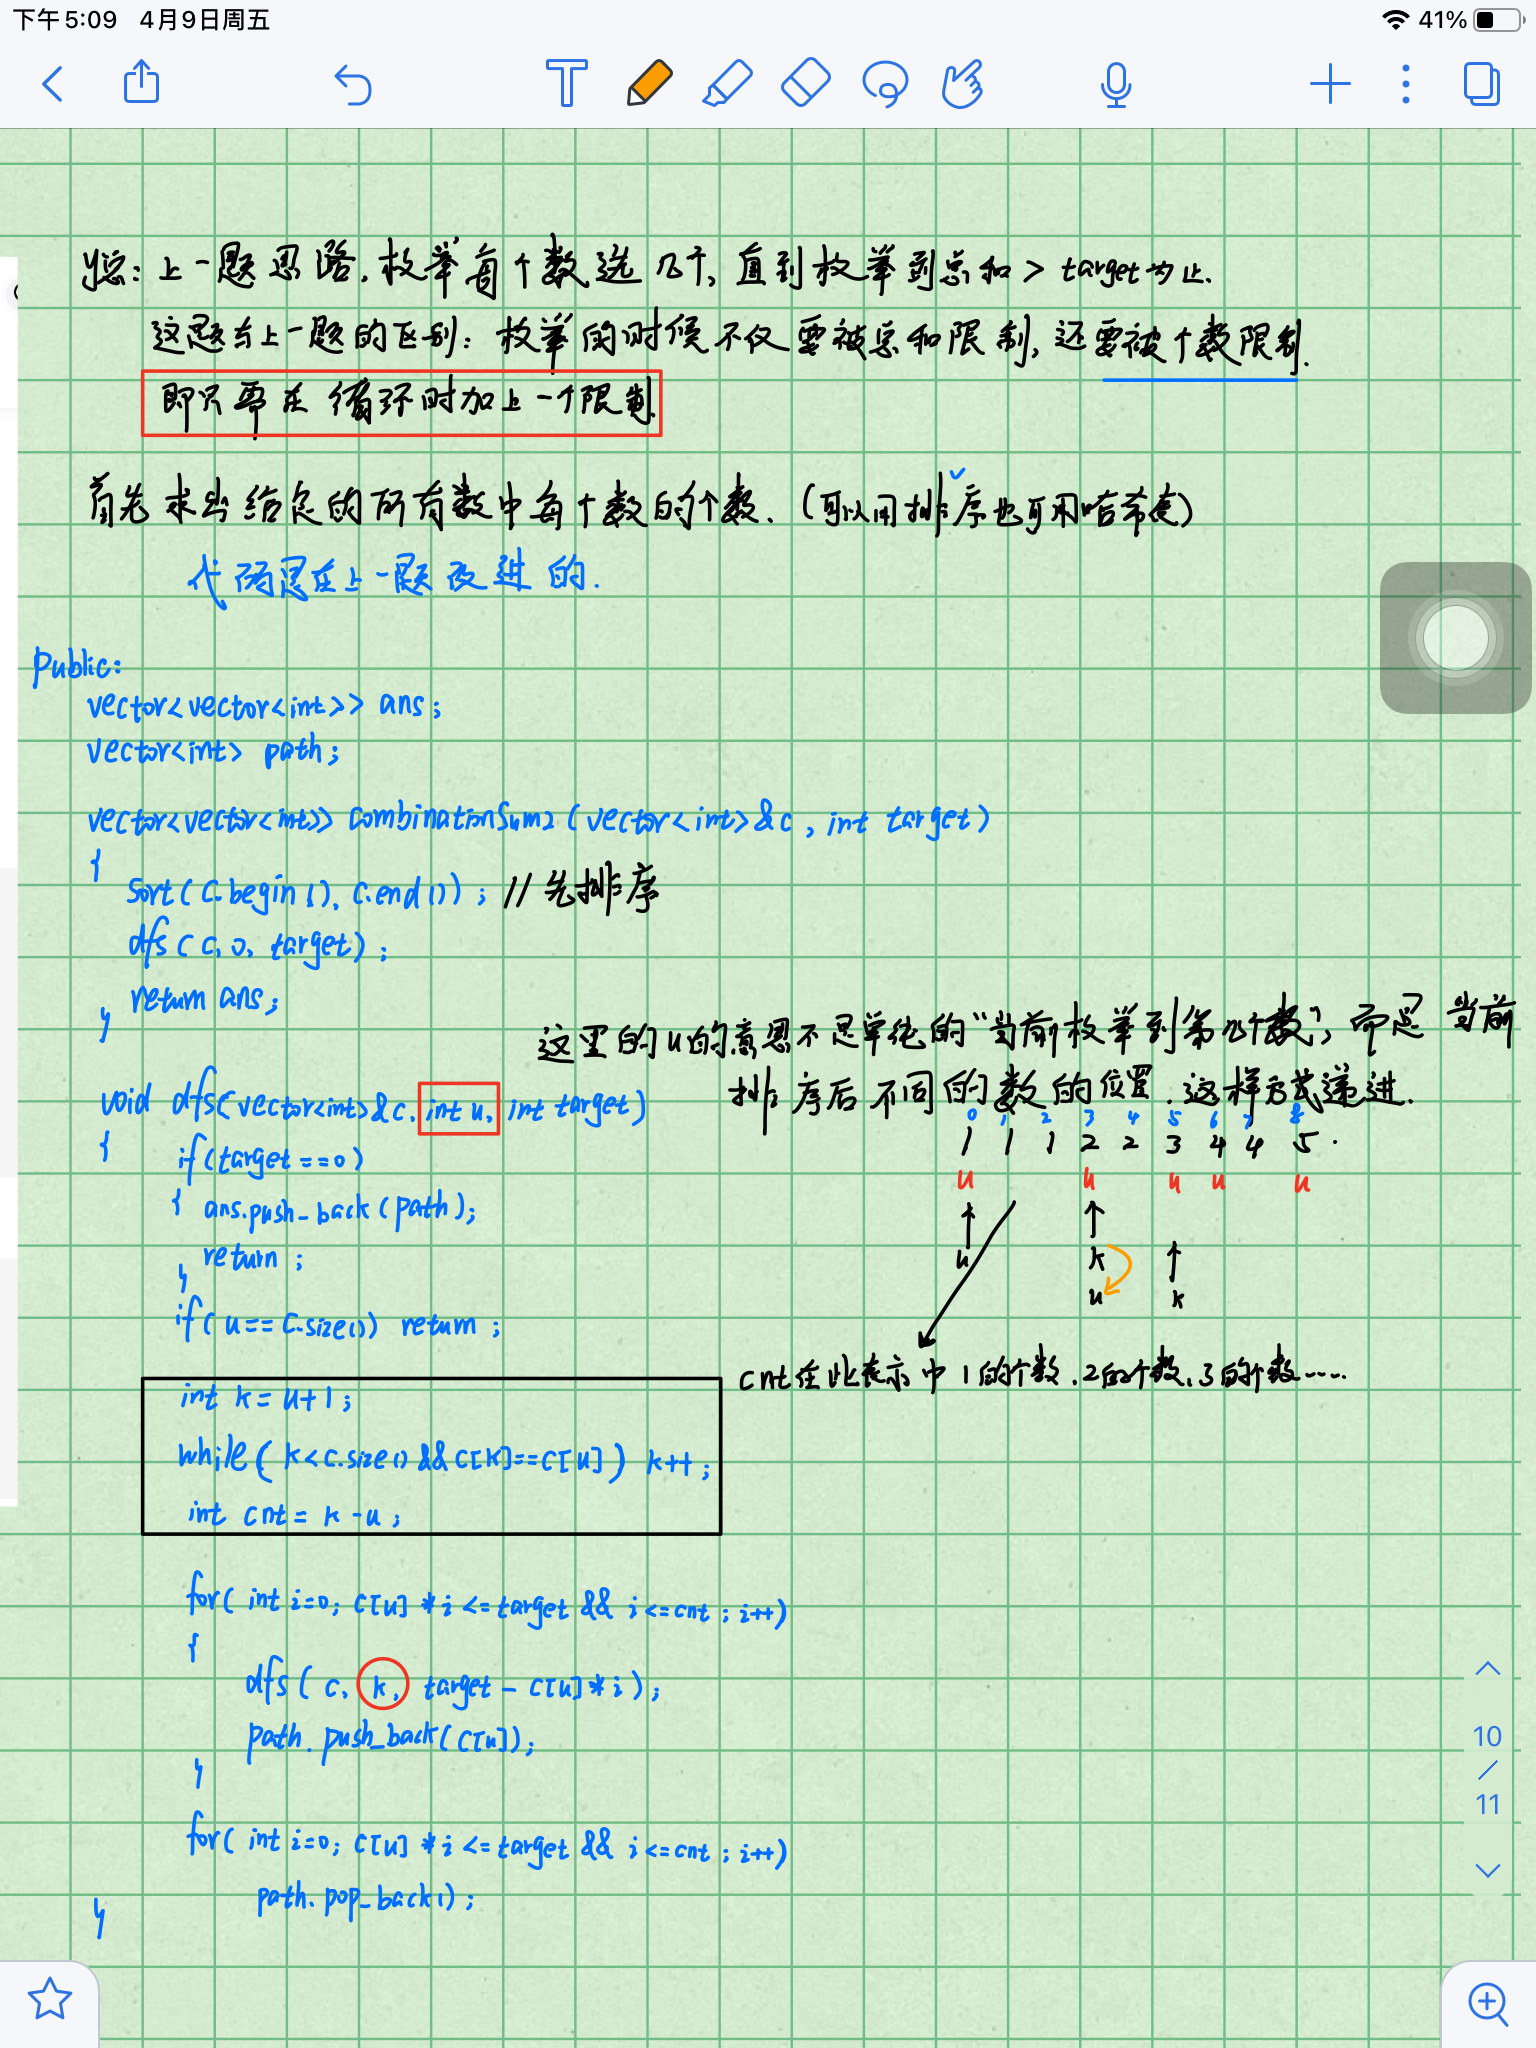 下午5:09 4月9日周五 41%
y总：上一题思路，枚举每个数选几个，直到枚举到总和 > target为止.
这题与上一题的区别：枚举的时候不仅要被总和限制，还要被个数限制.
即只要在循环时加上一个限制
首先求出给定的所有数中每个数的个数.（可以用排序也可用哈希表）
代码是在上一题改进的.
public:
vector<vector<int>> ans;
vector<int> path;
vector<vector<int>> combinationSum2(vector<int>&c, int target)
{
sort(c.begin(), c.end()); //先排序
dfs(c, 0, target);
return ans;
}
这里的u的意思不是单纯的“当前枚举到第几个数”，而是当前
排序后不同的数的位置.这样形式递进.
void dfs(vector<int>&c, int u, int target)
0 1 2 3 4 5 6 7 8
1 1 1 2 2 3 4 4 5 .
u u u u u
{ if(target==0)
{ ans.push_back(path);
return ;
}
u k
u k
if(u==c.size()) return ;
cnt在此表示中1的个数.2的个数.3的个数……
int k = u+1;
while(k<c.size()&&c[k]==c[u]) k++;
int cnt = k-u;
for( int i=0; c[u]*i<=target && i<=cnt ; i++)
{
dfs( c, k, target - c[u]*i);
path.push_back(c[u]);
}
for( int i=0; c[u]*i<=target && i<=cnt ; i++)
path.pop_back();
}
10
/
11